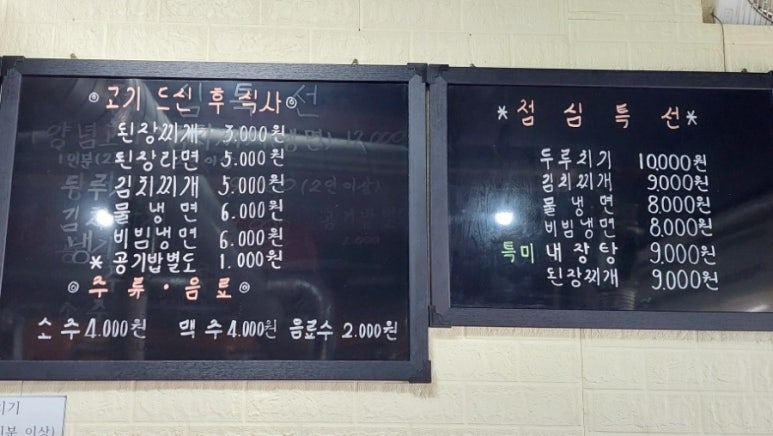 ◎ 고기 드신 후 식사 ◎
된장찌개 3.000원
된장라면 5.000원
김치찌개 5.000원
물냉면 6.000원
비빔냉면 6.000원
* 공기밥별도 1.000원
◎ 주류·음료 ◎
소주 4.000원 맥주 4.000원 음료수 2.000원
* 점심특선 *
두루치기 10,000원
김치찌개 9,000원
물냉면 8,000원
비빔냉면 8,000원
특미 내장탕 9,000원
된장찌개 9,000원
이상)